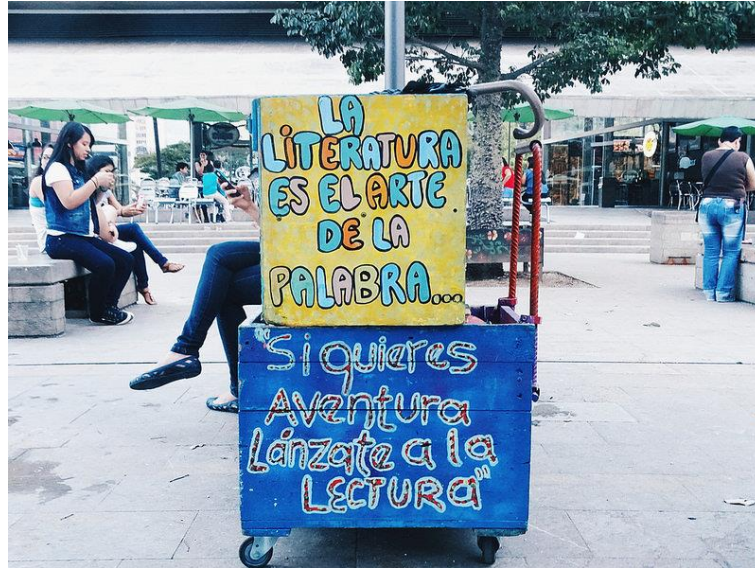 LA
LITERATURA
ES EL ARTE
DE LA
PALABRA...
"Si quieres
AVentura
Lánzate a la
LECTURa"